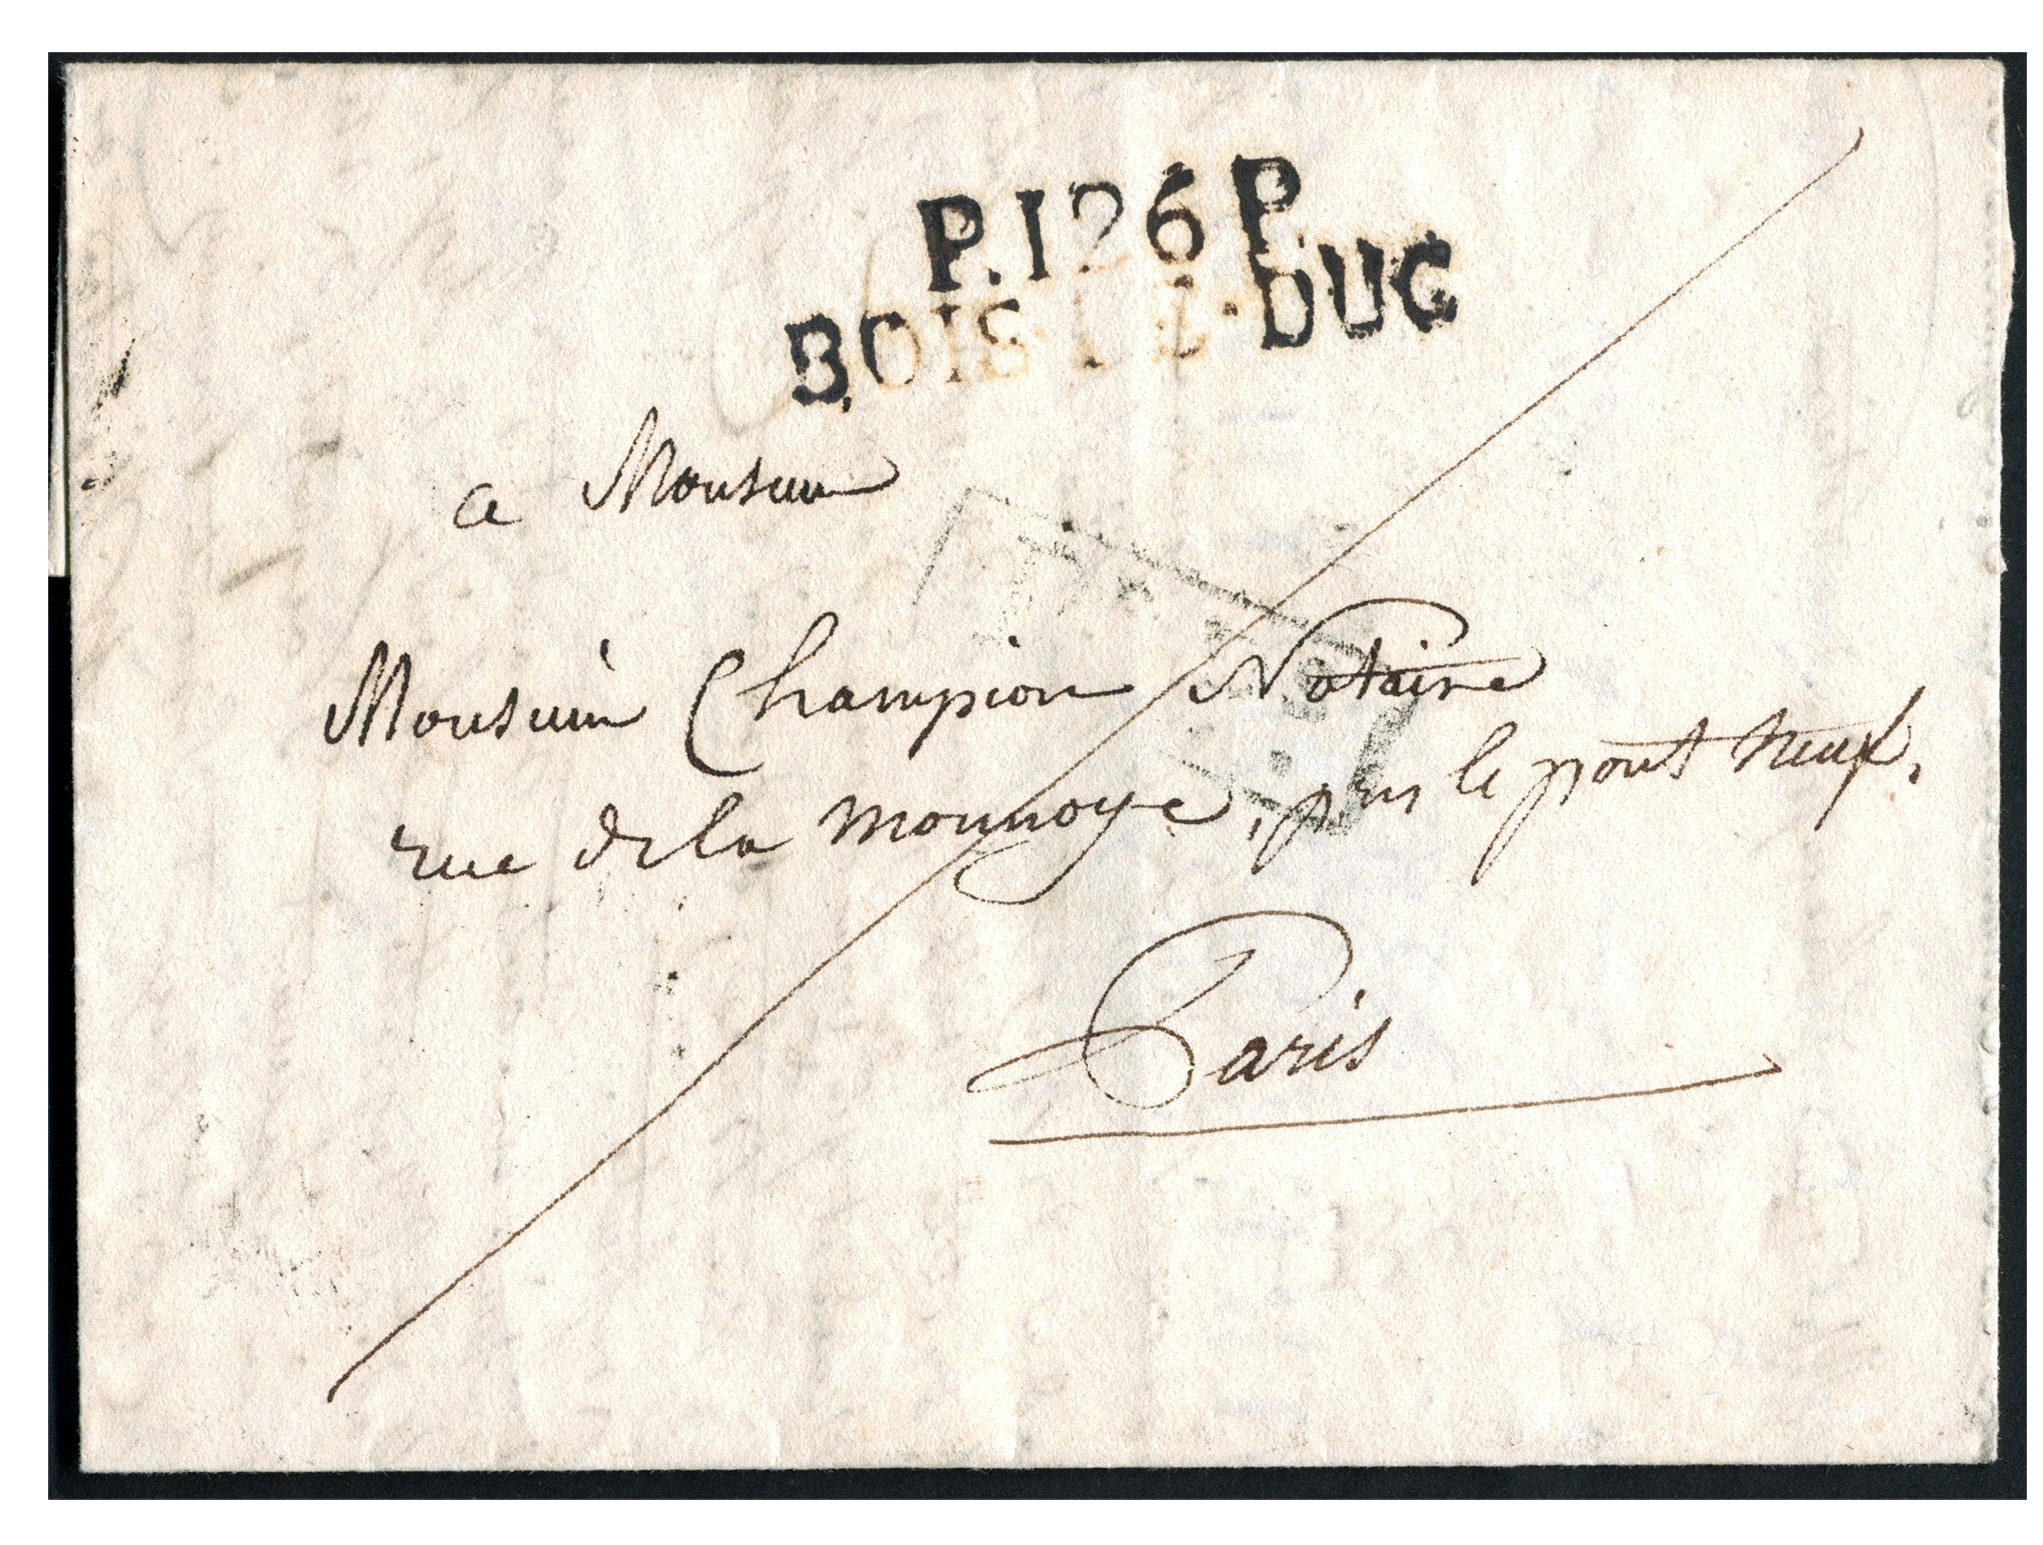 P.126 P.
BOIS-LE-DUC
a Monsieur
Monsieur Champion Notaire
rue de la monnoye, pres le pont neuf.
Paris